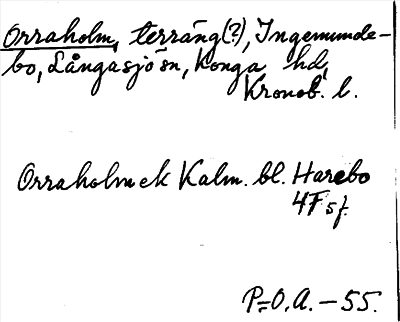 Orraholm, terräng(?), Ingemunde-
bo, Långasjö sn, Konga hd,
Kronob. l.
Orraholm ek Kalm. bl. Harebo
4F sf.
P=O.A. - 55.